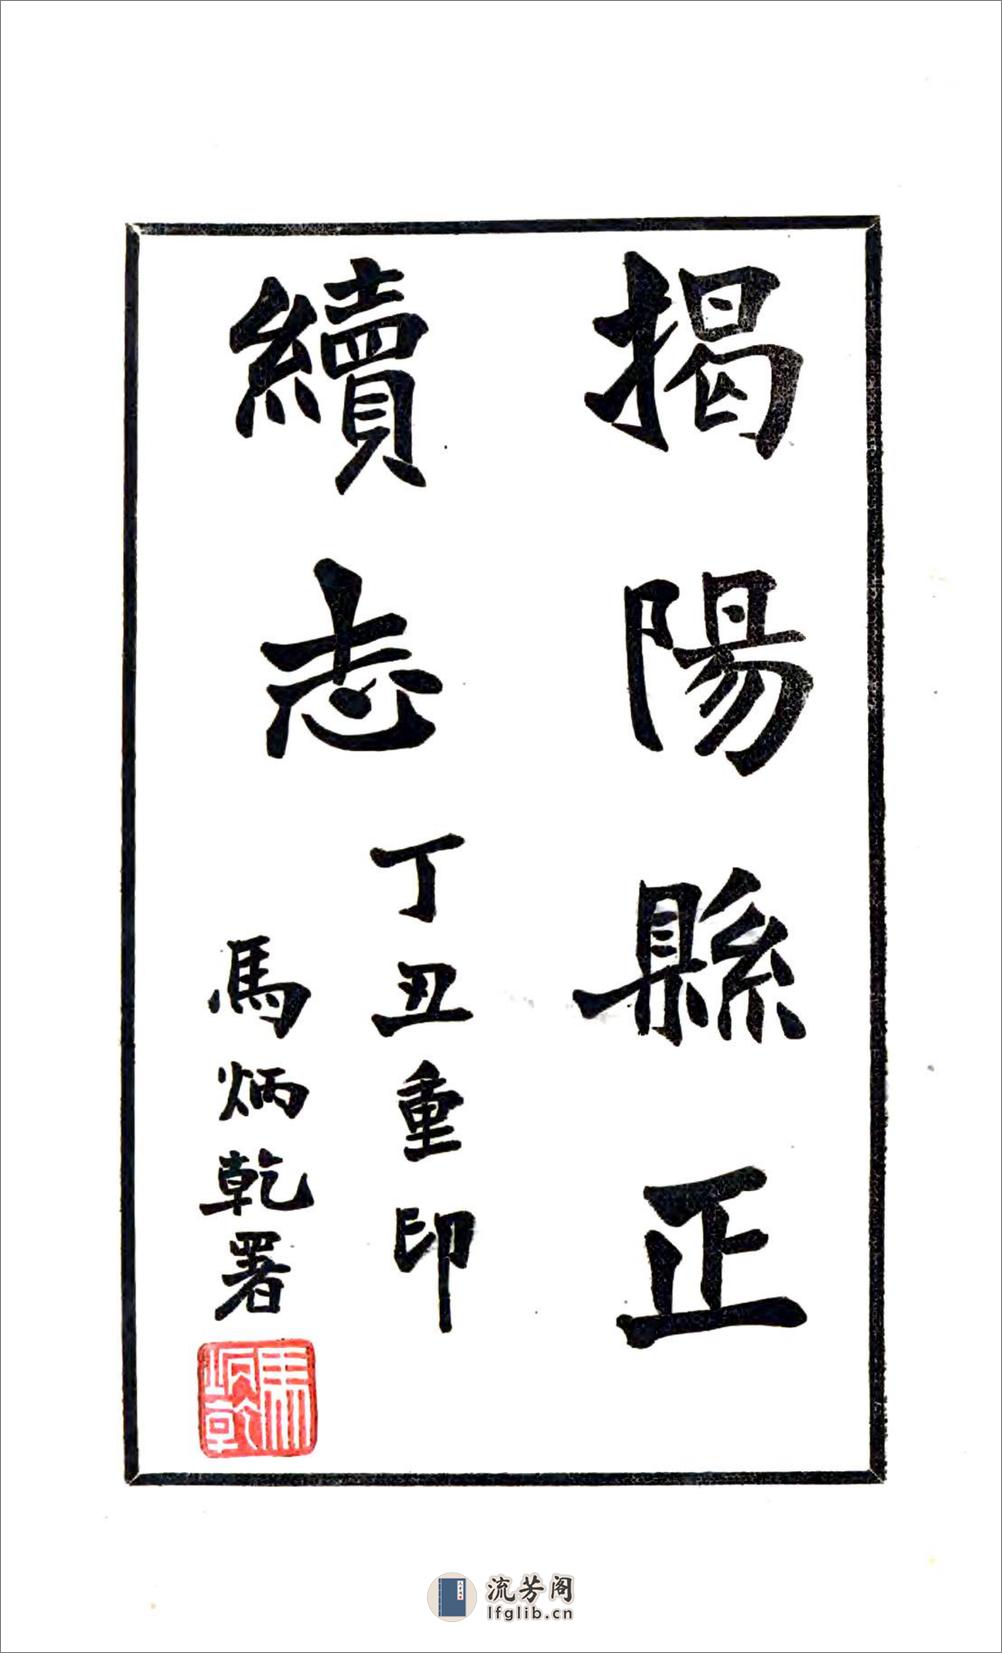 揭陽縣正
續志
丁丑重印
馬炳乾署
馬炳乾
流芳阁
lfglib.cn